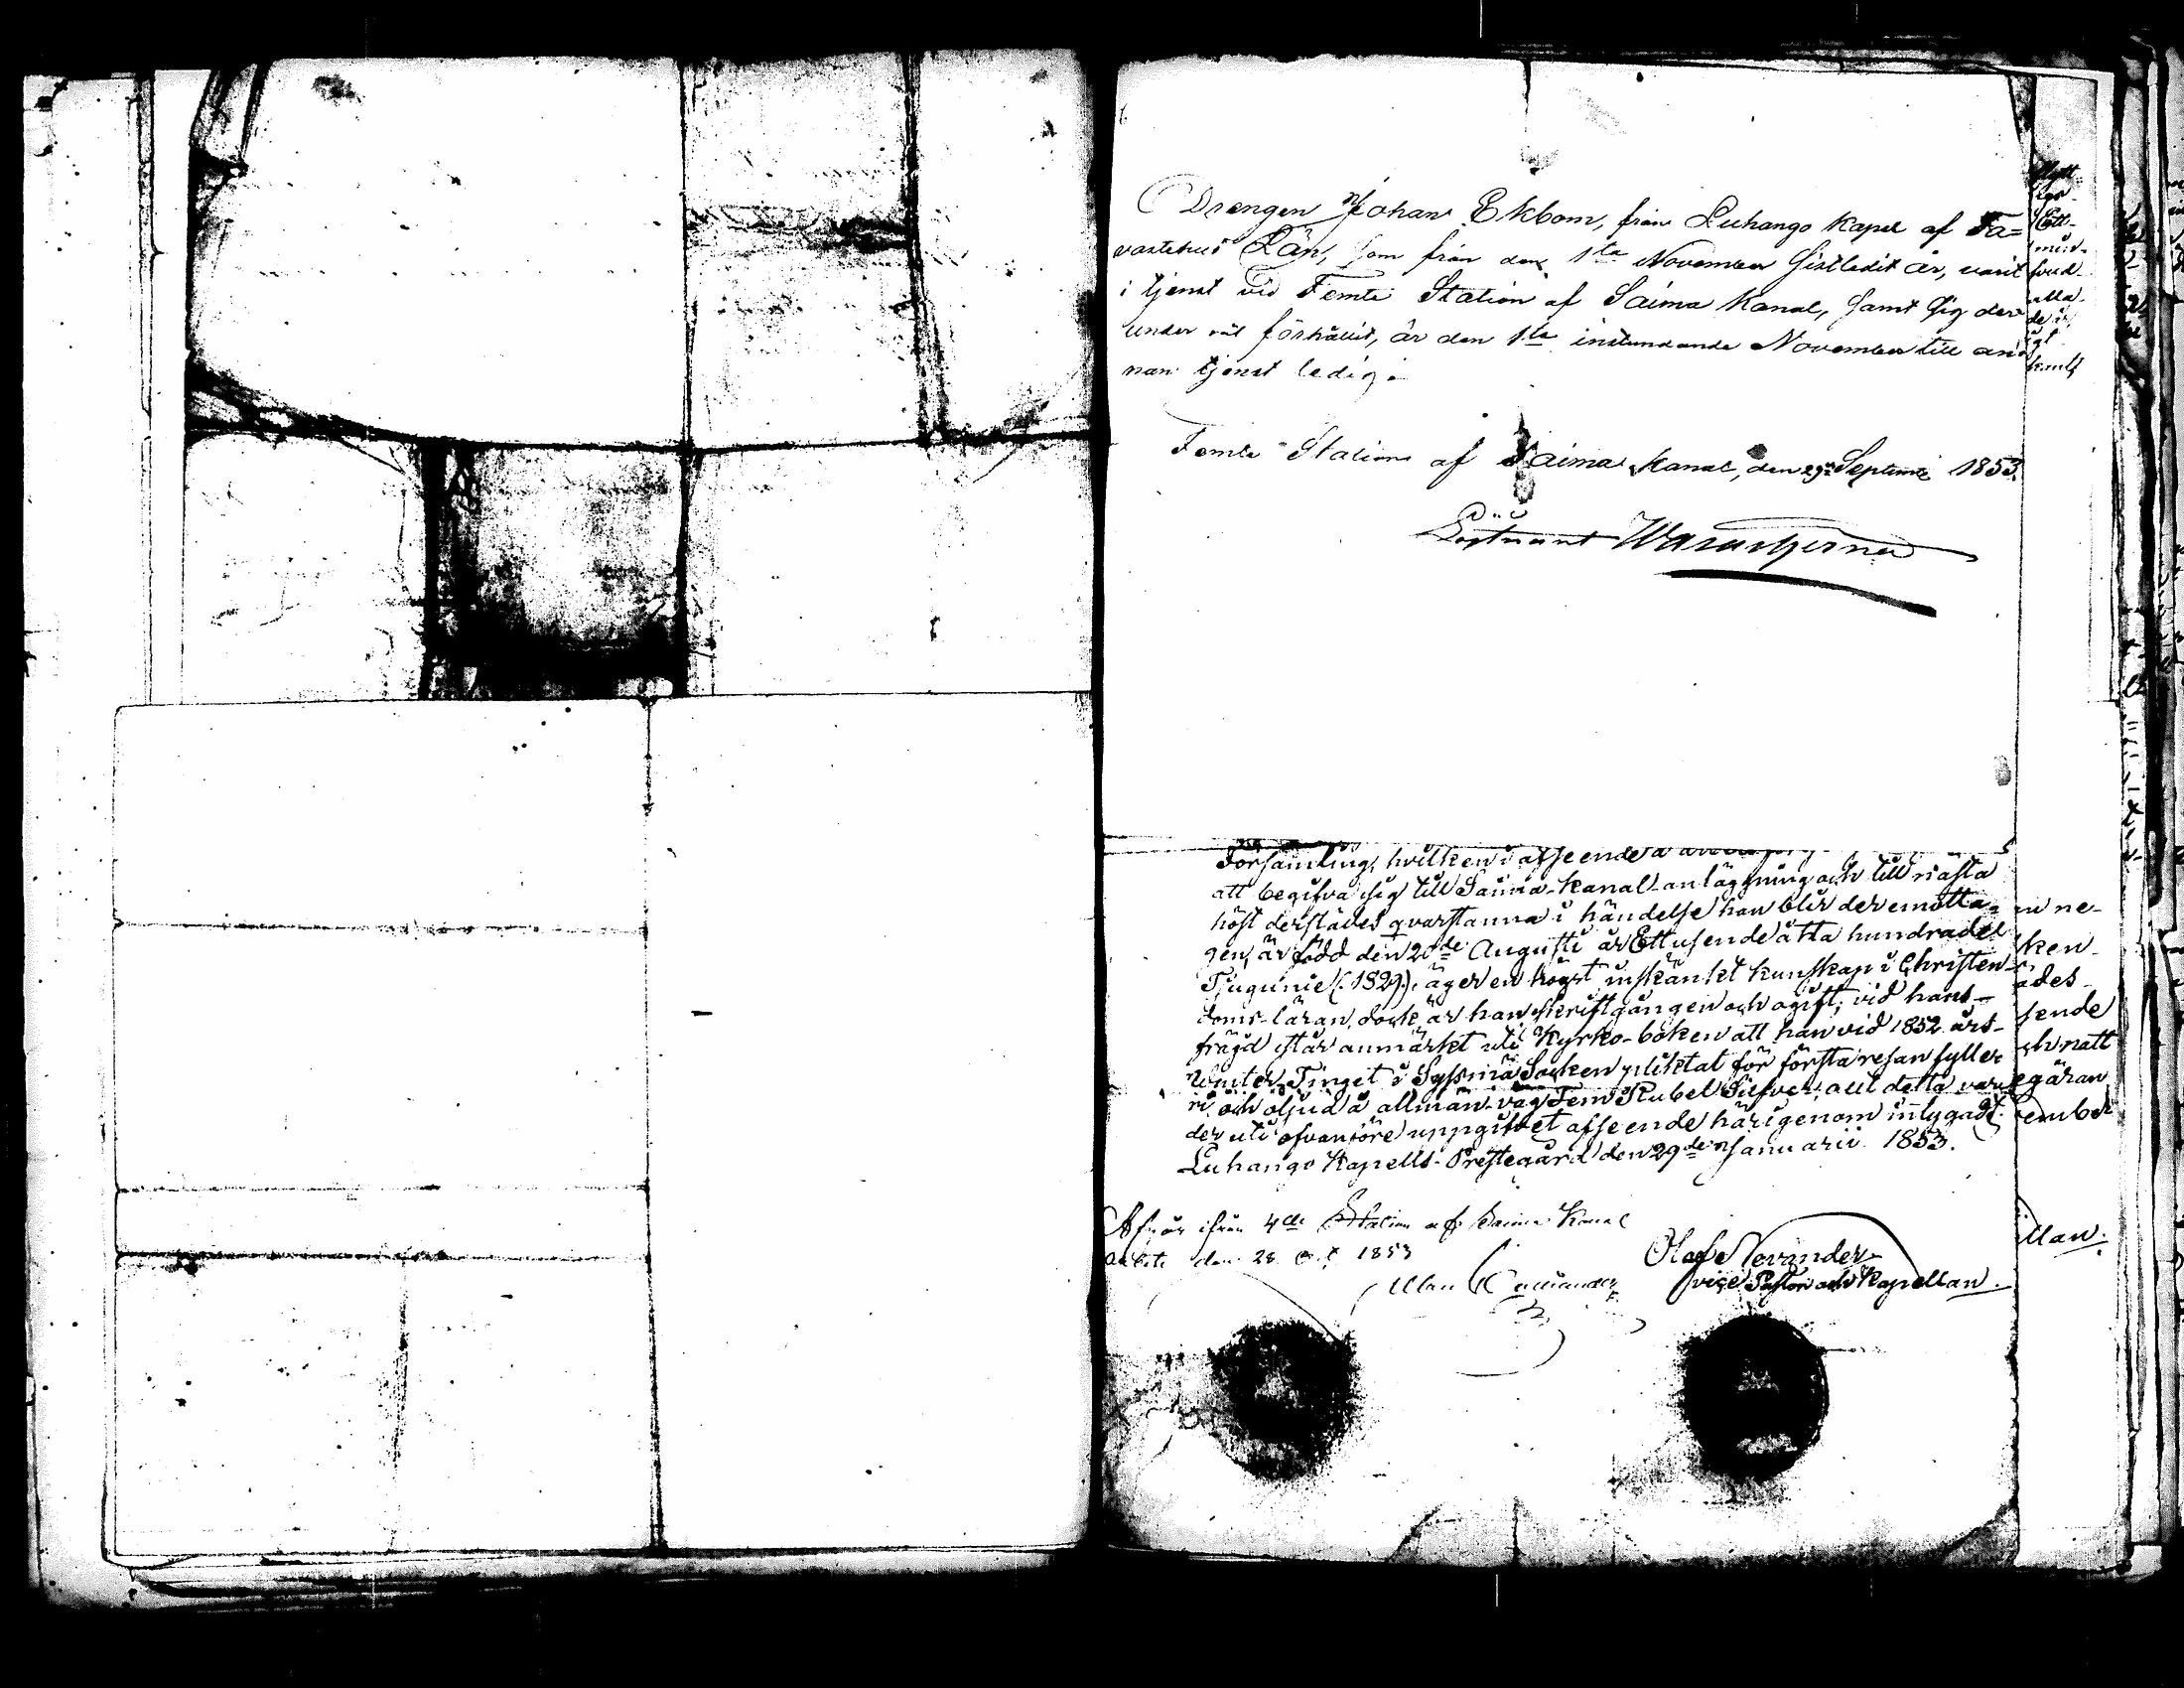 Drengen Johan Ekbom, från Luhango Kapel af Ta=
vastehus Län, som från den 1sta November sistledit år, varit
i tjenst vid Femte Station af Saima Kanal, samt sig der
under väl förhållit, är den 1sta instundande November till an=
nan tjenst ledig.
Femte Station af Saima Kanal, den 29de Septembr 1853.
Löjtnant Wasastjerna
Församling, hvilken i afseende å
att begifva sig till Saima-Kanal-anläggning och till nästa
höst derstädes qvarstanna i händelse han blir der emotta-
gen, är född den 20de Augusti år Ettusende åtta hundrade
Tjugunie (:1829:), äger en högst inskänkt kunskap i Christen-
doms-läran, dock är han skriftgången och ogift; vid hans
frägd står anmärkt uti Kyrko-boken att han vid 1852 års
Winter-Tinget i Syssmä Socken pliktat för första resan fylle-
ri och oljud å allmän väg Fem Rubel Silfver; allt detta var-
der uti ofvanföre uppgifvet afseende härigenom intygadt.
Luhango Kapells-Prestegård den 29de Januarii 1853.
Afgår ifrån 4de Station af Saima Kanal
arbete den 28 Oct 1853
Olof Nevander
vice Pastor och Kapellan.
ken
ades
sende
ch natt
egäran
ember
llan.